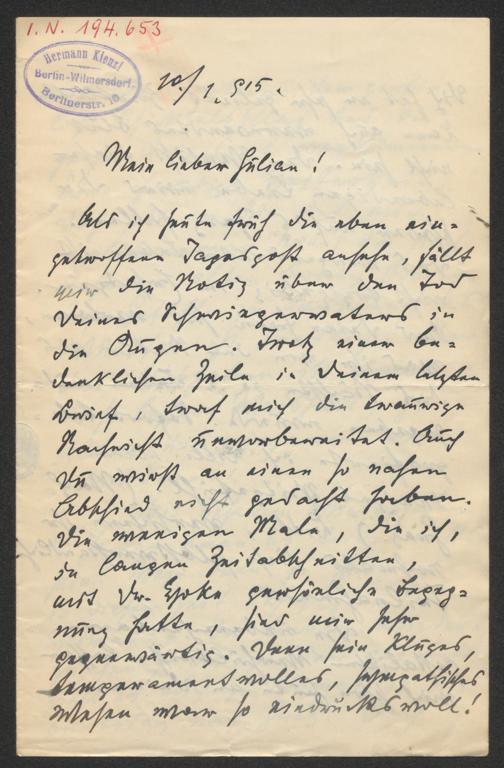 I. N. 194.653
Hermann Kienzl
Berlin-Wilmersdorf.
Berlinerstr. 10
20./1. 915.
Mein lieber Julian!
Als ich heute früh die eben ein-
getroffene Tagespost ansehe, fällt
mir die Notiz über den Tod
Deines Schwiegervaters in
die Augen. Trotz einer be-
denklichen Zeile in Deinem letzten
Brief, traf mich die traurige
Nachricht unvorbereitet. Auch
Du wirst an einen so nahen
Abschied nicht gedacht haben.
Die wenigen Male, die ich,
in langen Zeitabschnitten,
mit Dr. persönliche Begeg-
nung hatte, sind mir sehr
gegenwärtig. Denn sein kluges,
temperamentvolles, sympathisches
Wesen war so eindrucksvoll!